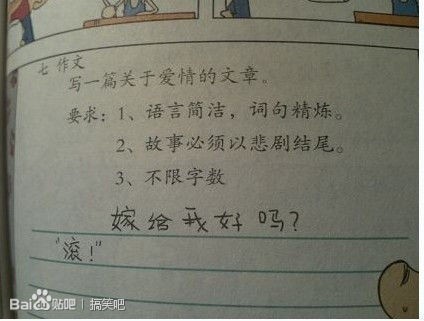 七 作文
写一篇关于爱情的文章。
要求：1、语言简洁，词句精炼。
2、故事必须以悲剧结尾。
3、不限字数
嫁给我好吗？
“滚！”
Bai du 贴吧 | 搞笑吧